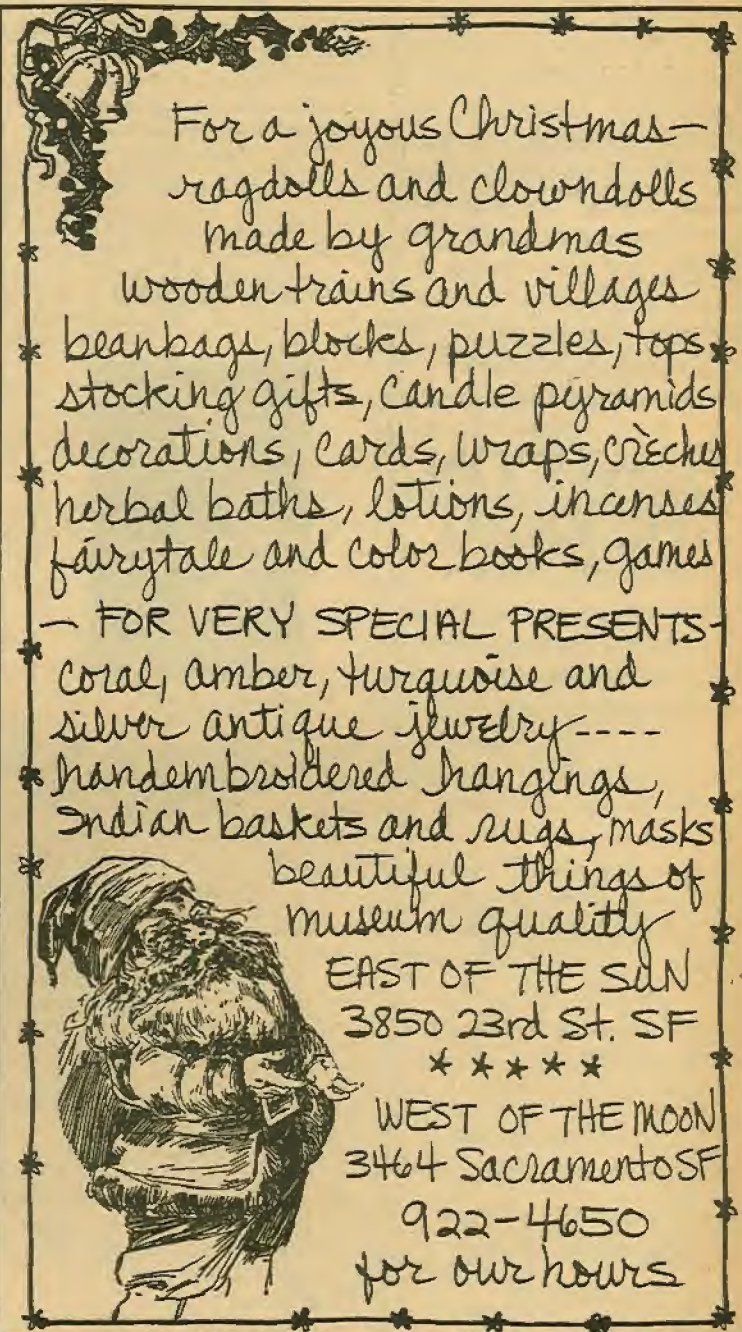 For a joyous Christmas—
ragdolls and clowndolls
made by grandmas
wooden trains and villages
beanbags, blocks, puzzles, tops
stocking gifts, candle pyramids
decorations, cards, wraps, crèches
herbal baths, lotions, incenses
fairytale and color books, games
— FOR VERY SPECIAL PRESENTS-
coral, amber, turquoise and
silver antique jewelry----
handembroidered hangings,
Indian baskets and rugs, masks
beautiful things of
museum quality
EAST OF THE SUN
3850 23rd St. SF
*****
WEST OF THE MOON
3464 Sacramento SF
922-4650
for our hours